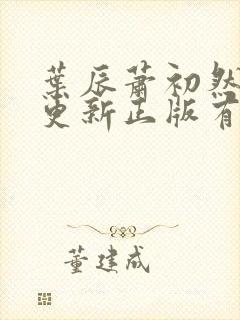 葉辰蕭初然
更新正版有
董建成